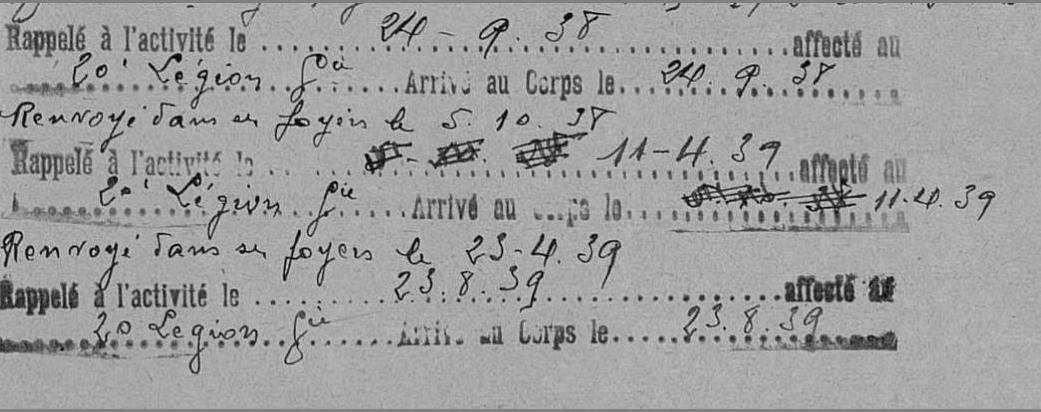 Rappelé à l'activité le 24 - 9. 38 affecté au
20e Légion Gie Arrivé au Corps le 24. 9. 38
Renvoyé dans ses foyers le 5. 10. 38
Rappelé à l'activité le 11-4. 39 affecté au
20e Légion Gie Arrivé au Corps le 11.4.39
Renvoyé dans ses foyers le 23-4. 39
Rappelé à l'activité le 23.8.39 affecté au
20 Légion Gie Arrivé au Corps le 23.8.39